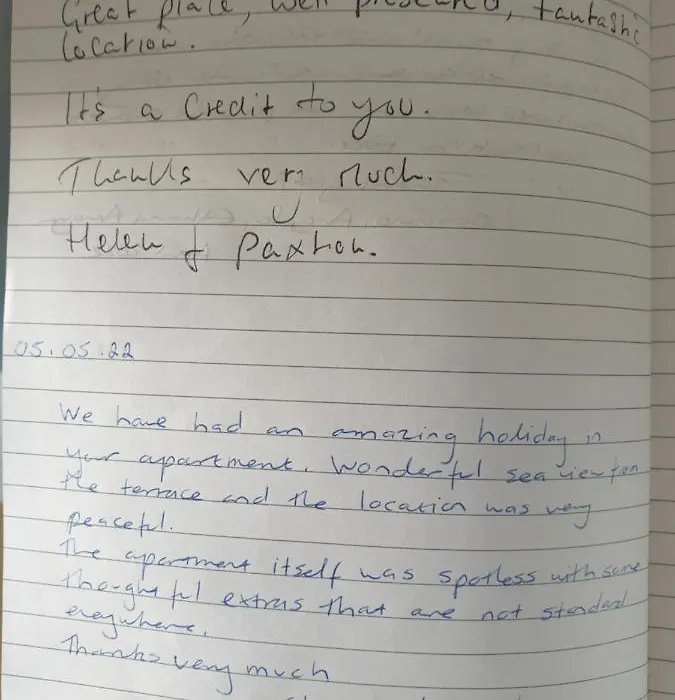 Great place, well presented, fantastic
location.
It's a Credit to you.
Thanks very much.
Helen & Paxton.
05.05.22
We have had an amazing holiday in
your apartment. Wonderful sea view from
the terrace and the location was very
peaceful.
The apartment itself was spotless with some
thoughtful extras that are not standard
everywhere.
Thanks very much